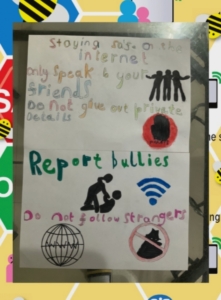 Staying safe on the
internet
only speak to your
friends
Do not give out private
Details
Report bullies
Do not follow strangers